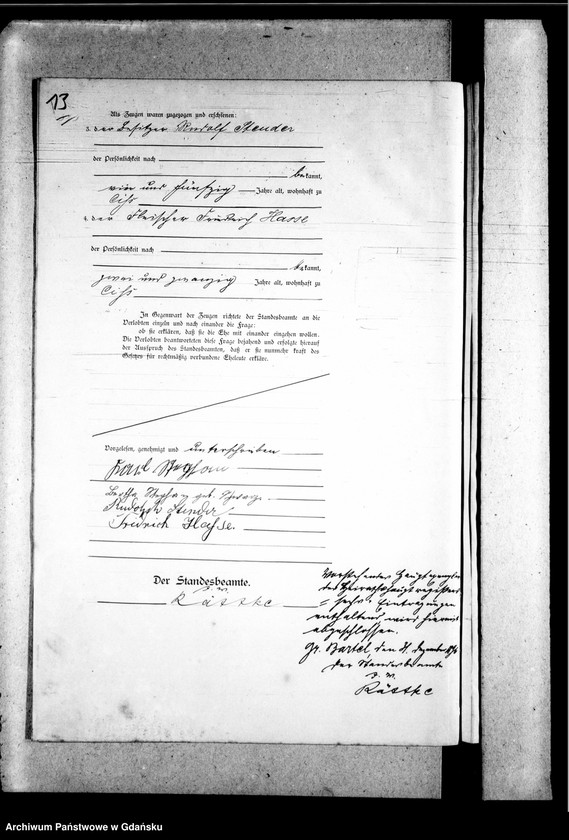 13
Als Zeugen waren zugezogen und erschienen:
3. der Besitzer Rudolf Stender
der Persönlichkeit nach
bekannt,
vier und fünfzig Jahre alt, wohnhaft zu
4. der Fleischer Friedrich Hasse
der Persönlichkeit nach
bekannt,
zwei und zwanzig Jahre alt, wohnhaft zu
In Gegenwart der Zeugen richtete der Standesbeamte an die
Verlobten einzeln und nach einander die Frage:
ob sie erklären, daß sie die Ehe mit einander eingehen wollen.
Die Verlobten beantworteten diese Frage bejahend und erfolgte hierauf
der Ausspruch des Standesbeamten, daß er sie nunmehr kraft des
Gesetzes für rechtmäßig verbundene Eheleute erkläre.
Vorgelesen, genehmigt und unterschrieben
Karl Stephan
Bertha Stephan geb.
Rudolph Stender
Fridrich Hasse.
Der Standesbeamte.
Rästke
Vorstehendes Hauptregister
des Heirathshauptregisters
sechs Eintragungen
enthaltend, wird hiermit
abgeschlossen.
Gr. Bartel, den 31. Dezember
Der Standesbeamte
Rästke
Archiwum Państwowe w Gdańsku